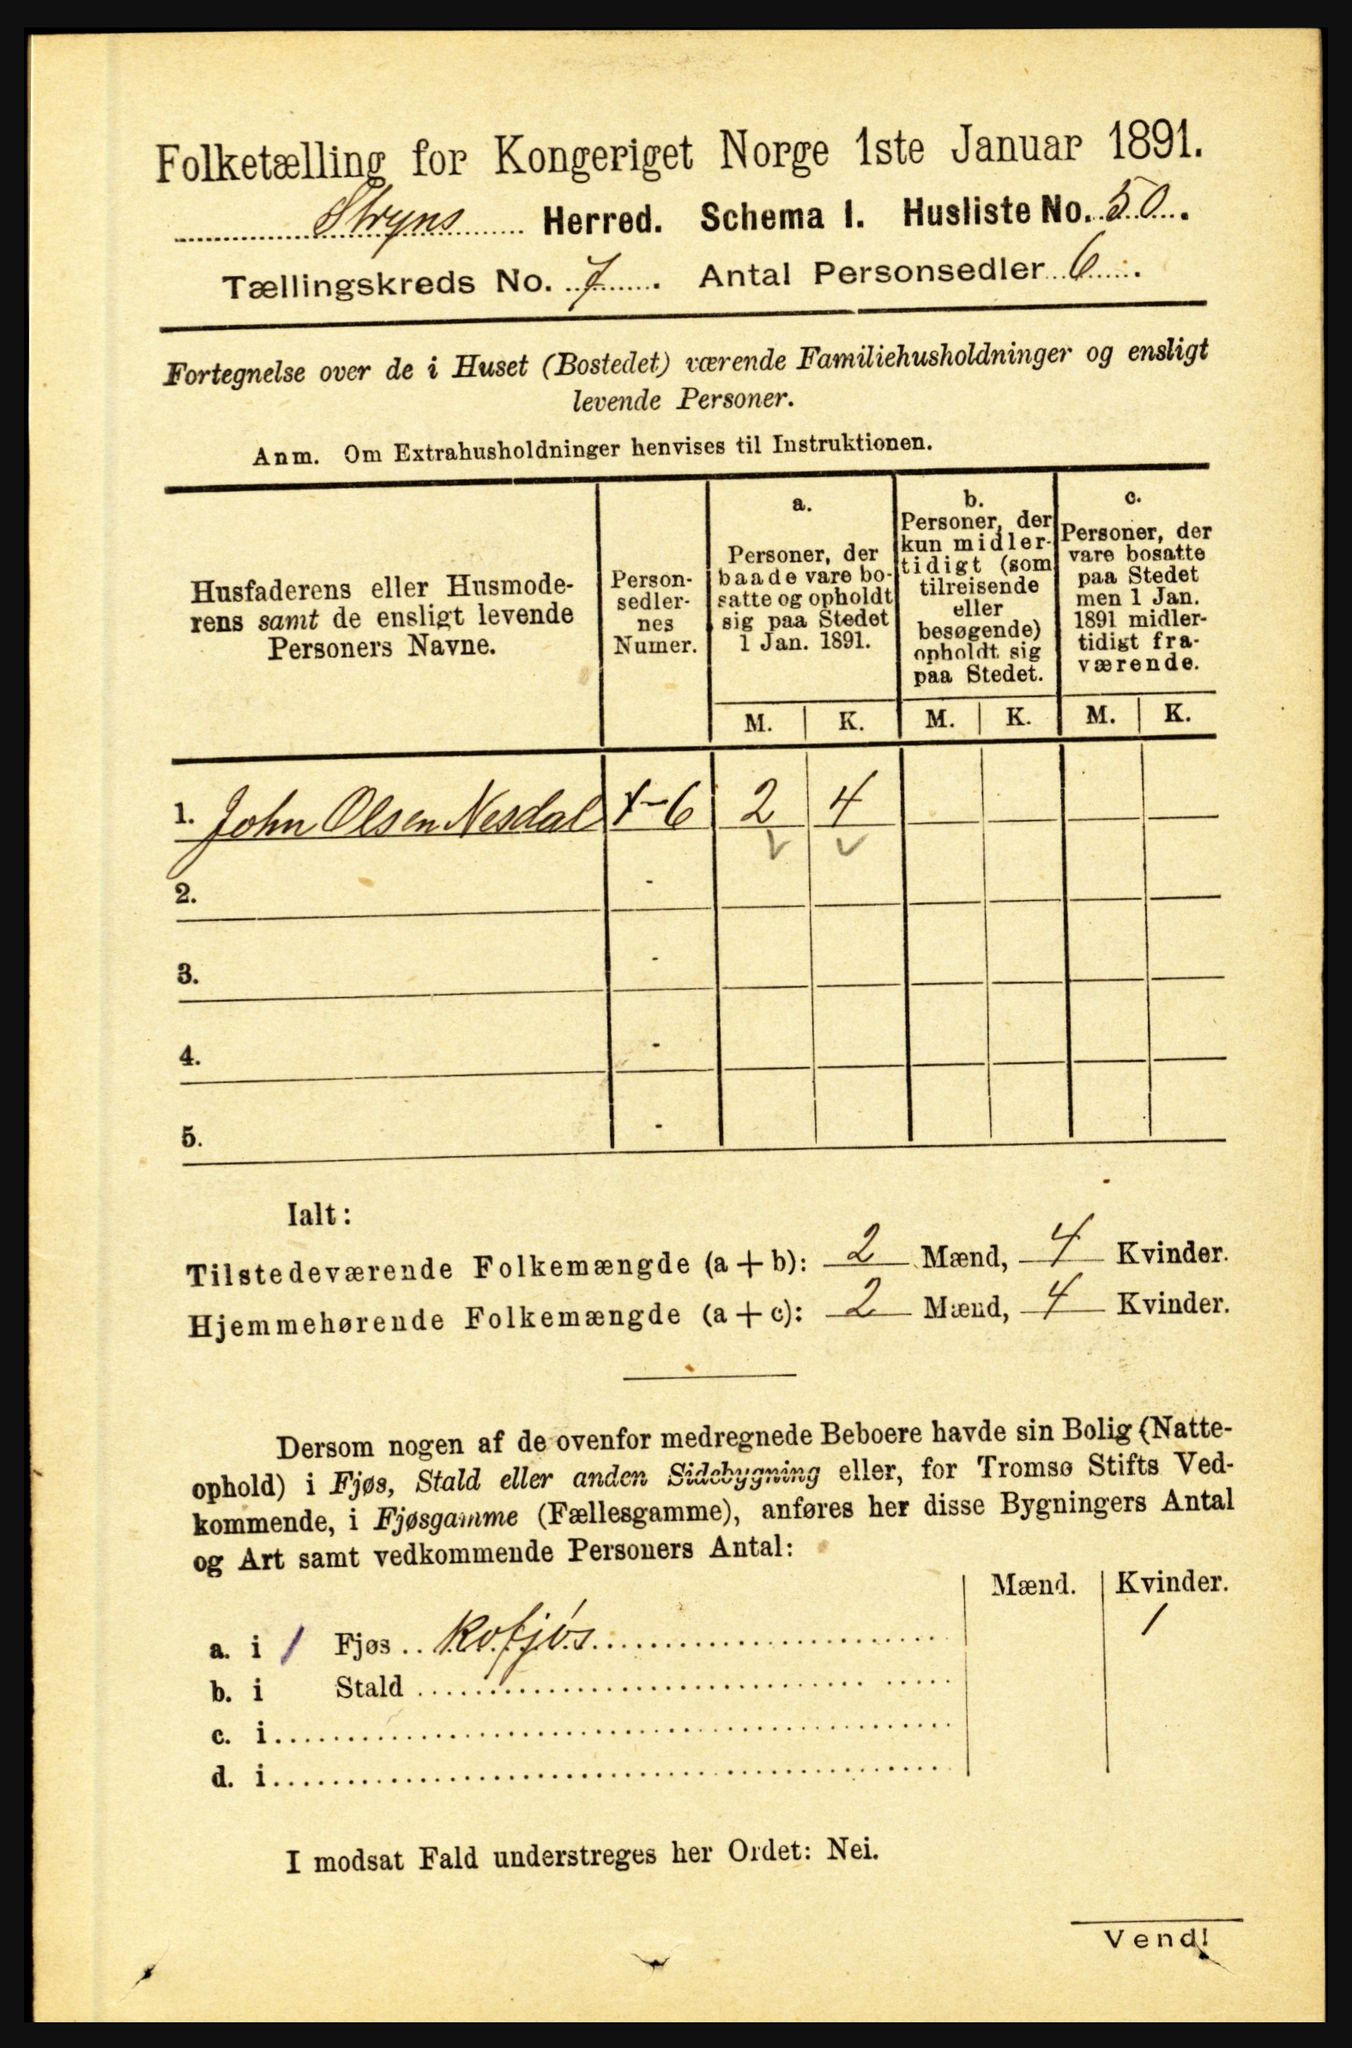 Folketælling for Kongeriget Norge 1ste Januar 1891.
Stryns Herred. Schema I. Husliste No. 50.
Tællingskreds No. 7. Antal Personsedler 6.
Fortegnelse over de i Huset (Bostedet) værende Familiehusholdninger og ensligt
levende Personer.
Anm. Om Extrahusholdninger henvises til Instruktionen.
Husfaderens eller Husmode-
rens samt de ensligt levende
Personers Navne.
Person-
sedler-
nes
Numer.
a.
Personer, der
baade vare bo-
satte og opholdt
sig paa Stedet
1 Jan. 1891.
b.
Personer, der
kun midler-
tidigt (som
tilreisende
eller
besøgende)
opholdt sig
paa Stedet.
c.
Personer, der
vare bosatte
paa Stedet
men 1 Jan.
1891 midler-
tidigt fra-
værende.
M. K. M. K. M. K.
1. John Olsen Nesdal 1-6 2 4
2. -
3. -
4. -
5. -
Ialt:
Tilstedeværende Folkemængde (a + b): 2 Mænd, 4 Kvinder.
Hjemmehørende Folkemængde (a + c): 2 Mænd, 4 Kvinder.
Dersom nogen af de ovenfor medregnede Beboere havde sin Bolig (Natte-
ophold) i Fjøs, Stald eller anden Sidebygning eller, for Tromsø Stifts Ved-
kommende, i Fjøsgamme (Fællesgamme), anføres her disse Bygningers Antal
og Art samt vedkommende Personers Antal:
Mænd. Kvinder.
a. i 1 Fjøs .. Kofjøs 1
b. i Stald
c. i
d. i
I modsat Fald understreges her Ordet: Nei.
Vend!